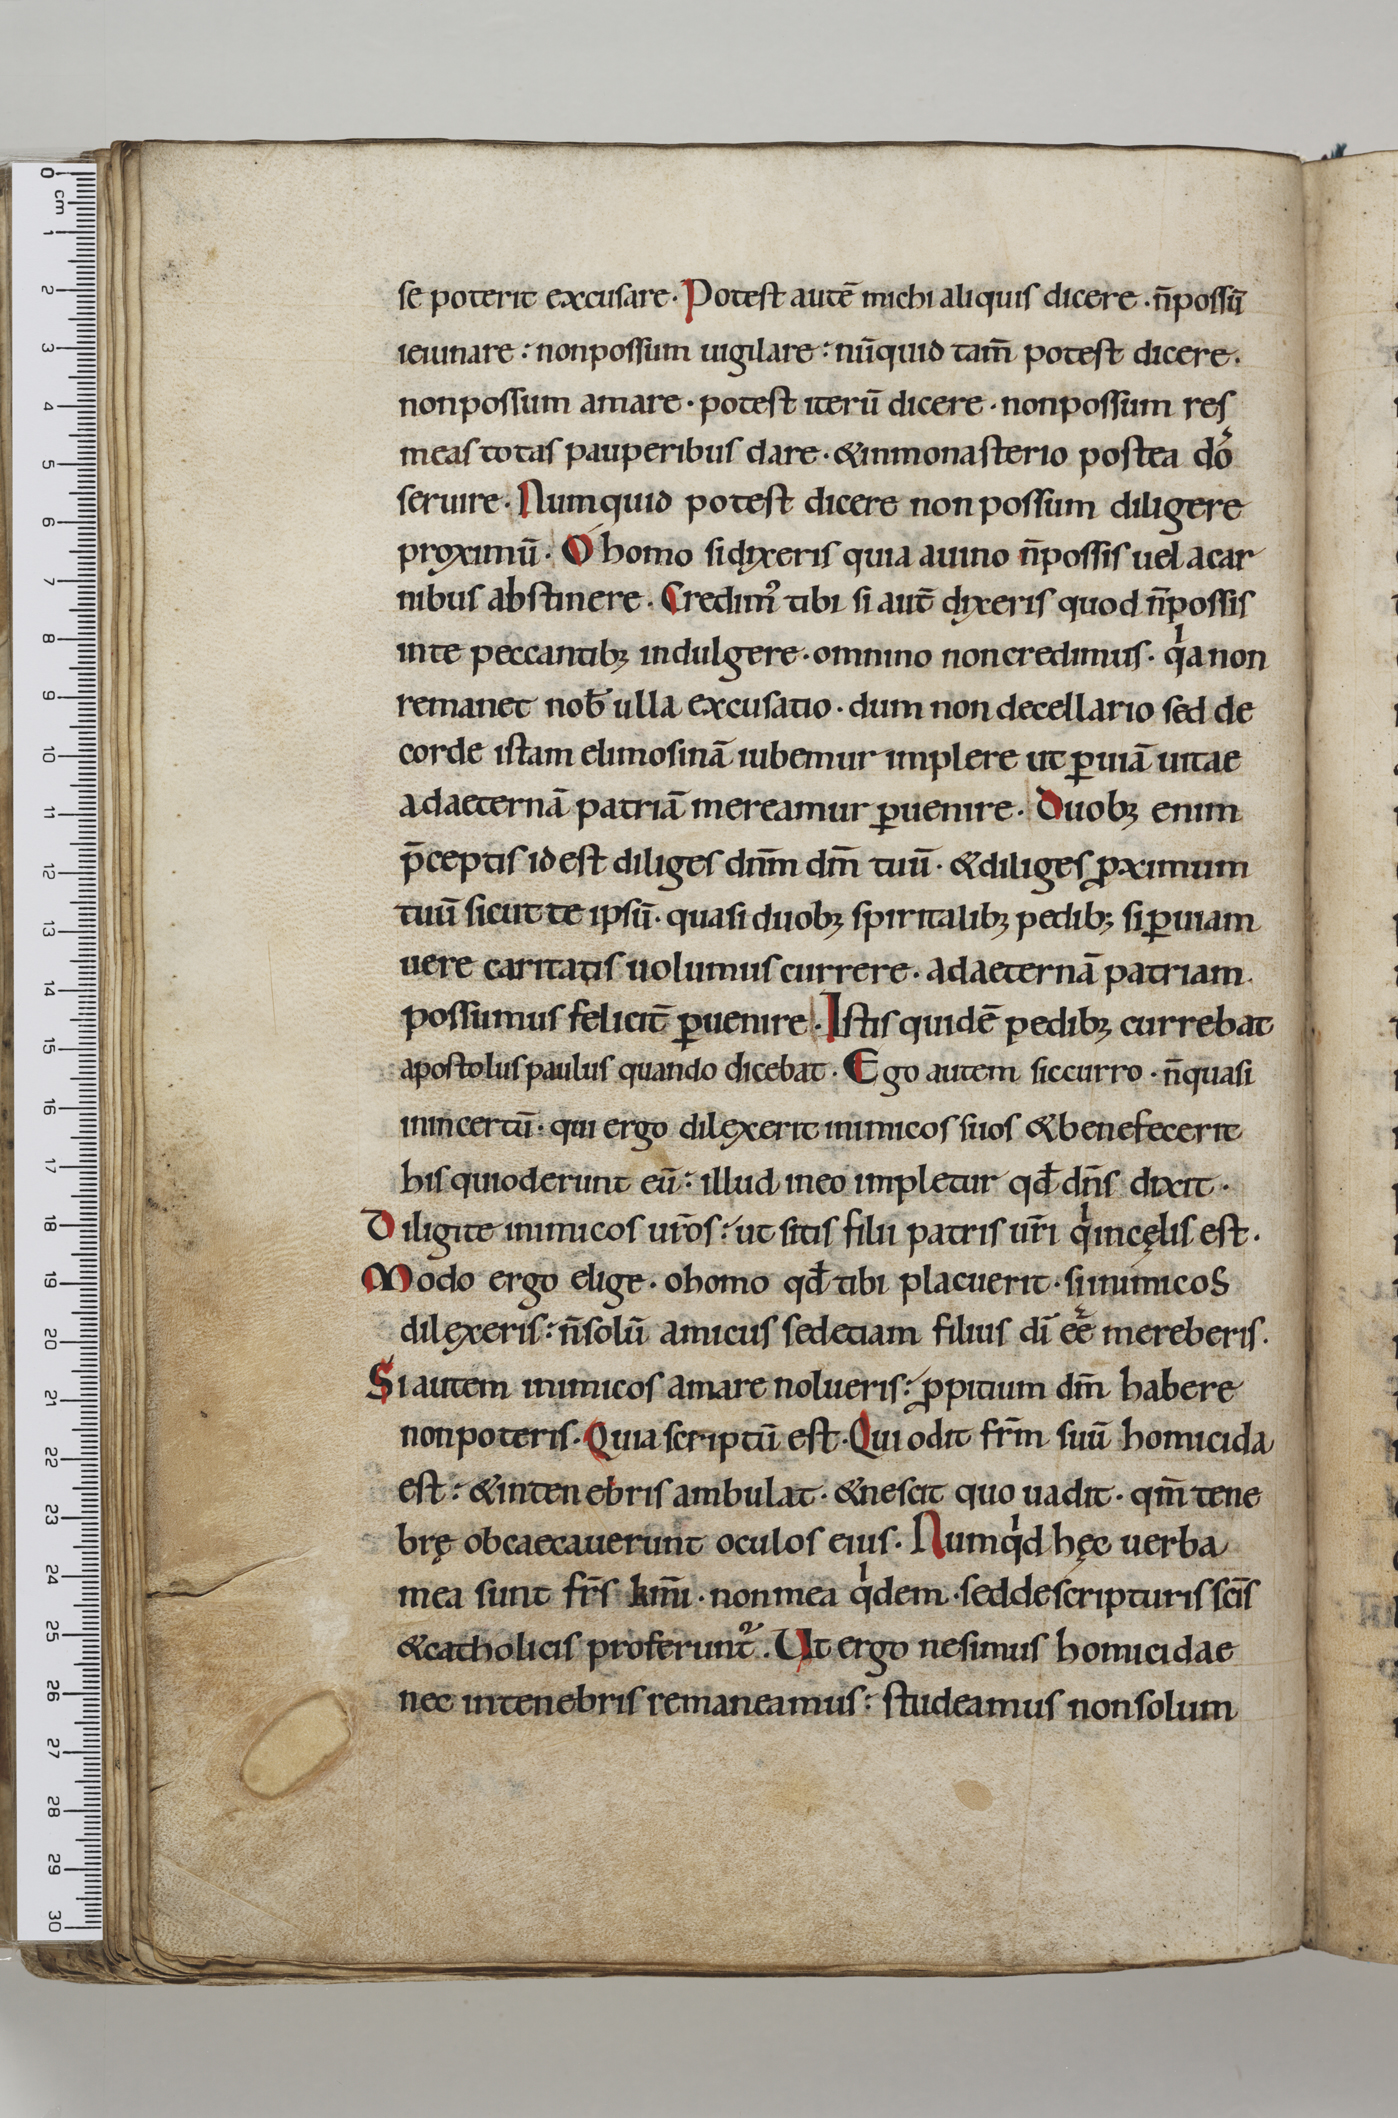 0 cm 1 2 3 4 5 6 7 8 9 10 11 12 13 14 15 16 17 18 19 20 21 22 23 24 25 26 27 28 29 30
se poterit excusare. Potest autē michi aliquis dicere. n̄possū
ieiunare: nonpossum uigilare: nūquid tam̄ potest dicere.
nonpossum amare. potest iterū dicere. nonpossum res
meas totas pauperibus dare. &inmonasterio postea dō
seruire. Numquid potest dicere non possum diligere
proximū. O homo sidixeris quia auino n̄possis uel acar
nibus abstinere. Credim᾽ tibi si aut̄ dixeris quod n̄possis
inte peccantibꝫ indulgere. omnino noncredimus. qͥa non
remanet nob̄ ulla excusatio. dum non decellario sed de
corde istam elimosinā iubemur implere ut ꝑuiā uitae
adaeternā patriā mereamur ꝑuenire. Duobꝫ enim
p̄ceptis idest diliges dn̄m dm̄ tuū. &diliges ꝓximum
tuū sicut te ipsū. quasi duobꝫ spiritalibꝫ pedibꝫ si ꝑuiam
uere caritatis uolumus currere. adaeternā patriam
possumus felicit̄ ꝑuenire. Istis quidē pedibꝫ currebat
apostolus paulus quando dicebat. Ego autem siccurro. n̄quasi
inincertū. qui ergo dilexerit inimicos suos &benefecerit
his quioderunt eū: illud ineo impletur qd̄ dn̄s dixit.
Diligite inimicos ur̄os: ut sitis filii patris ur̄i qͥincęlis est.
Modo ergo elige. ohomo qd̄ tibi placuerit. siinimicos
dilexeris: n̄solū amicus sedetiam filius dī eē mereberis.
Si autem inimicos amare nolueris: ꝓpitium dm̄ habere
nonpoteris. Quia scriptū est. Qui odit fr̄m suū homicida
est: &intenebris ambulat. &nescit quo uadit. qm̄ tene
brę obcaecauerunt oculos eius. Numqͥd hęc uerba
mea sunt fr̄s km̄i. nonmea qͥdem. seddescripturis sc̄is
&catholicis proferunt᷑. Ut ergo nesimus homicidae
nec intenebris remaneamus: studeamus nonsolum